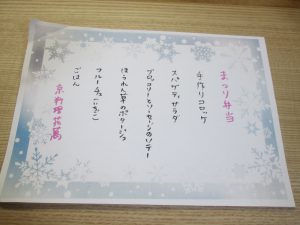 まつり弁当
手作りコロッケ
スパゲティサラダ
ブロッコリーとソーセージのソテー
ほうれん草のポタージュ
フルーチェ(いちご)
ごはん
京料理 花萬